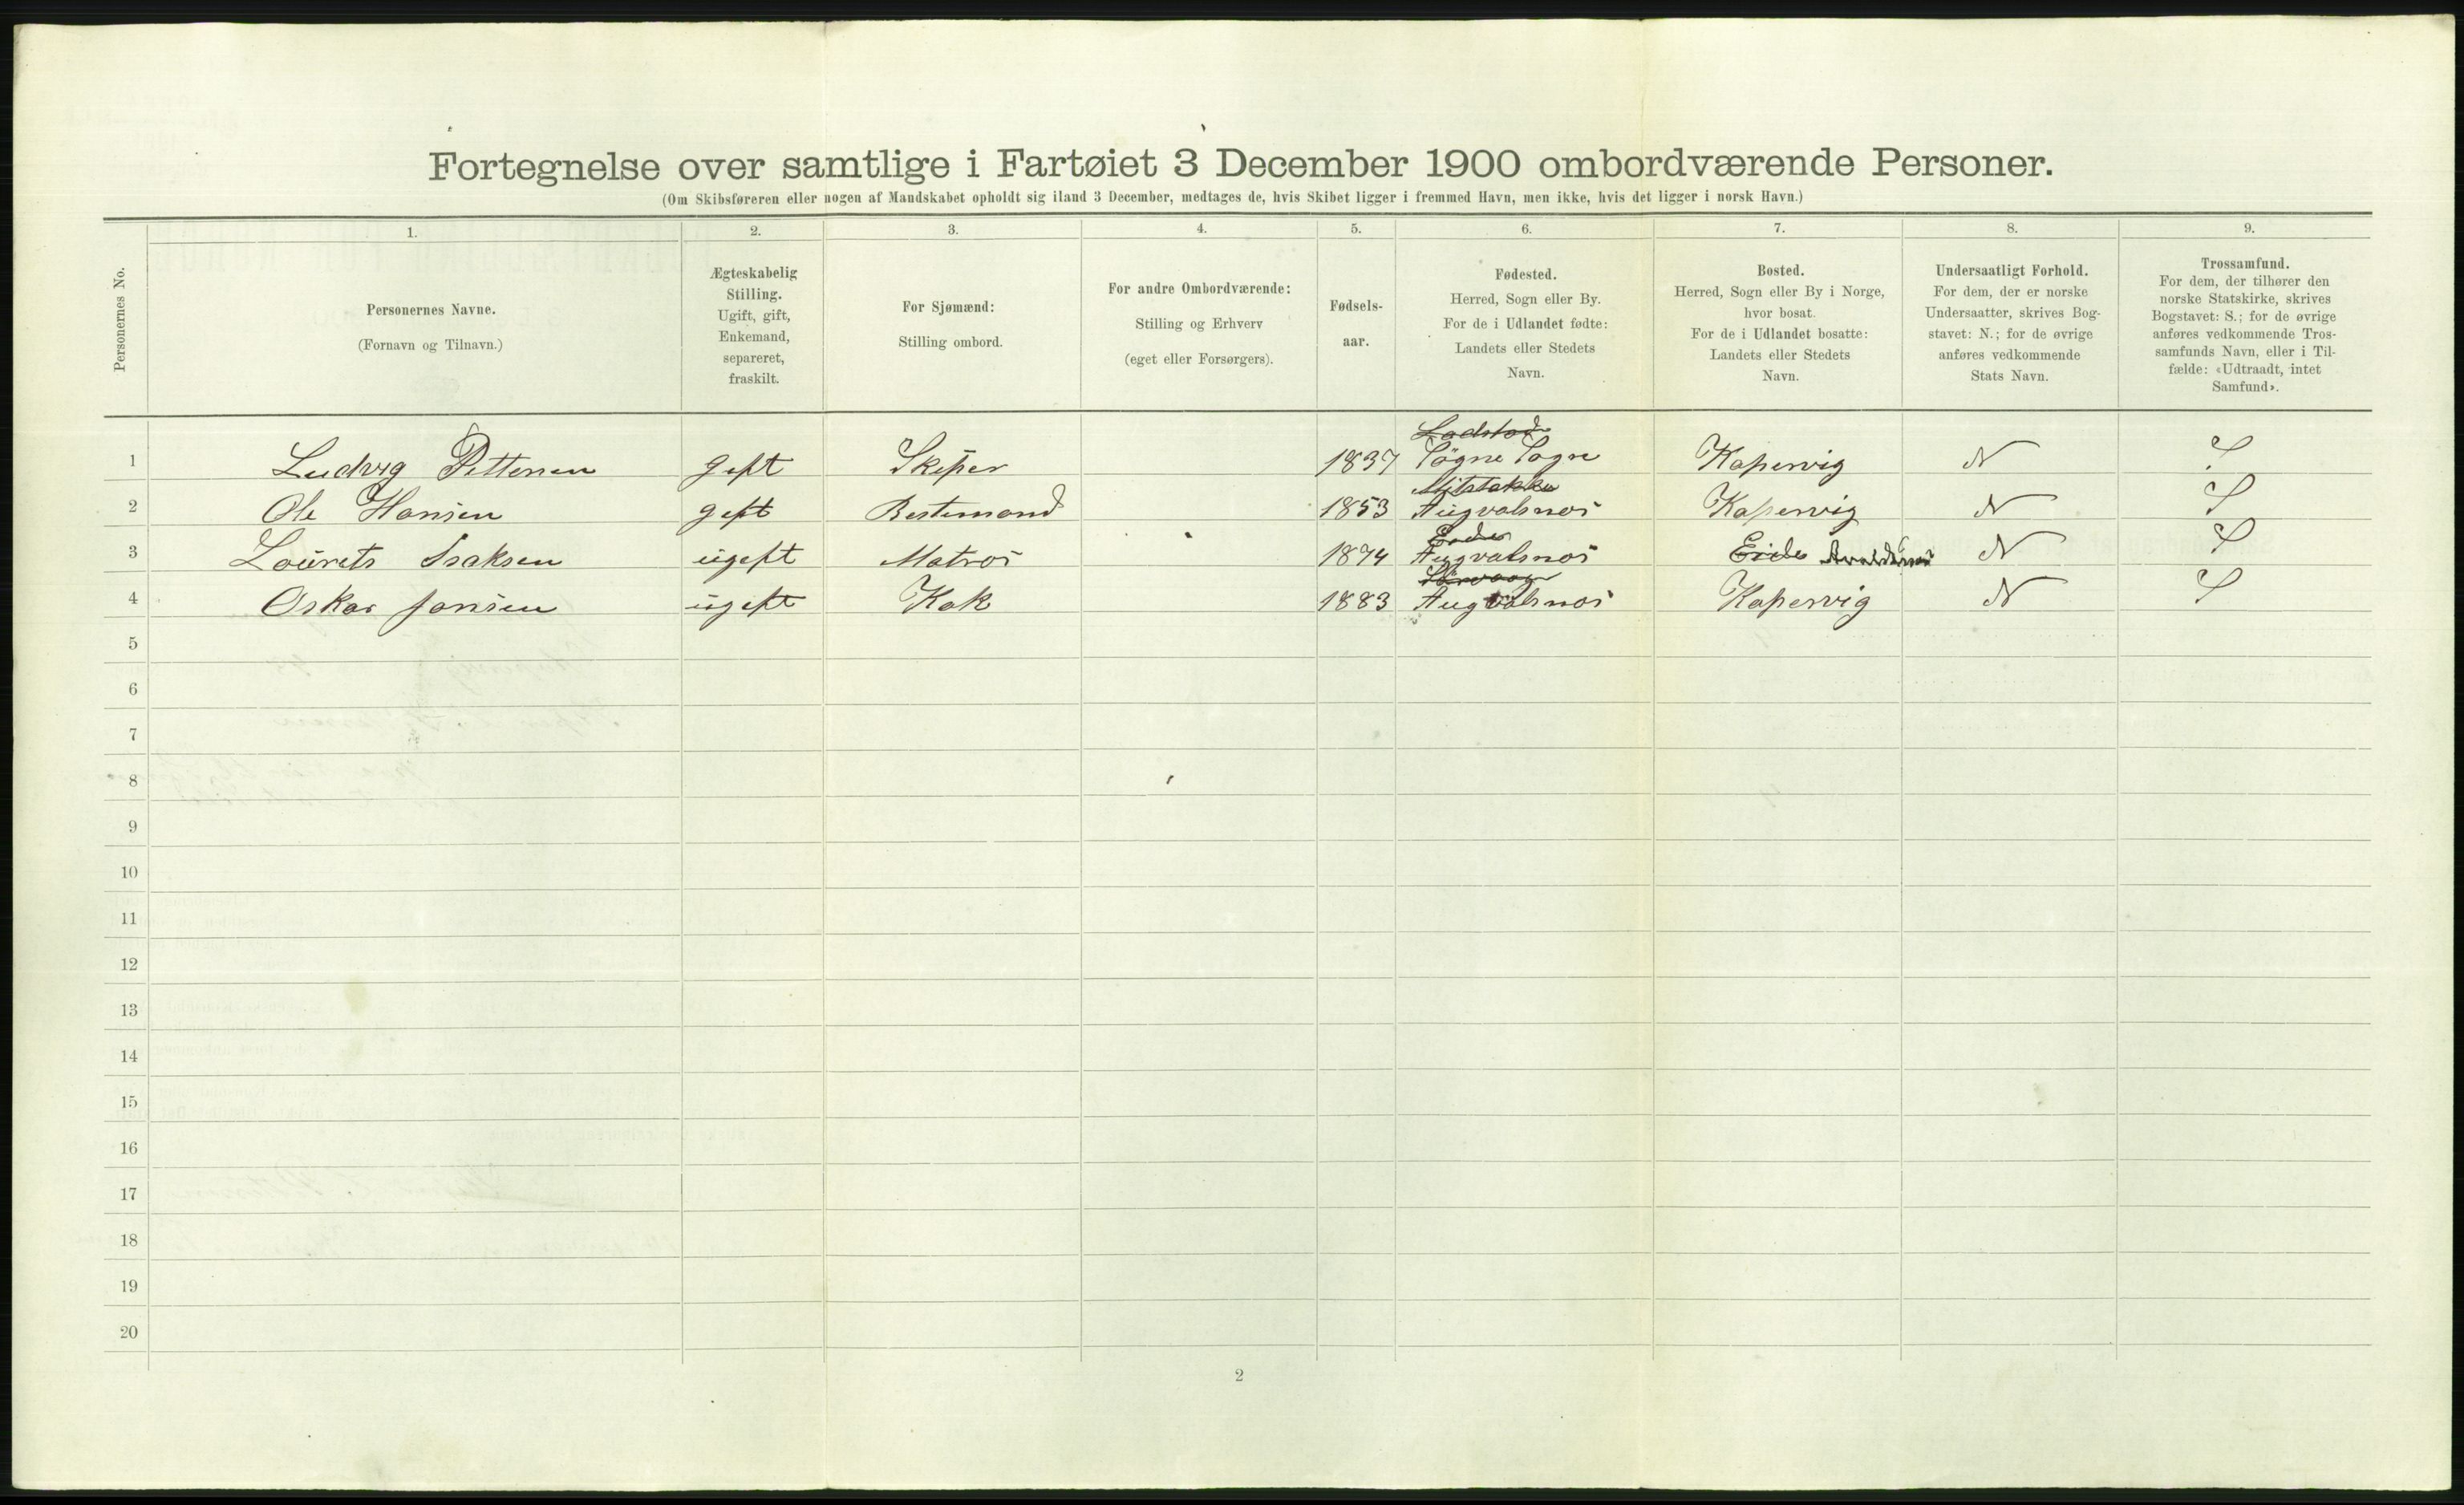 Fortegnelse over samtlige i Fartøiet 3 December 1900 ombordværende Personer.
(Om Skibsføreren eller nogen af Mandskabet opholdt sig iland 3 December, medtages de, hvis Skibet ligger i fremmed Havn, men ikke, hvis det ligger i norsk Havn.)
Personernes No.
1. 2. 3. 4. 5. 6. 7. 8. 9.
Personernes Navne.
(Fornavn og Tilnavn.)
Ægteskabelig
Stilling.
Ugift, gift,
Enkemand,
separeret,
fraskilt.
For Sjømænd:
Stilling ombord.
For andre Ombordværende:
Stilling og Erhverv
(eget eller Forsørgers).
Fødsels-
aar.
Fødested.
Herred, Sogn eller By.
For de i Udlandet fødte:
Landets eller Stedets
Navn.
Bosted.
Herred, Sogn eller By i Norge,
hvor bosat.
For de i Udlandet bosatte:
Landets eller Stedets
Navn.
Undersaatligt Forhold.
For dem, der er norske
Undersaatter, skrives Bog-
stavet: N.; for de øvrige
anføres vedkommende
Stats Navn.
Trossamfund.
For dem, der tilhører den
norske Statskirke, skrives
Bogstavet: S.; for de øvrige
anføres vedkommende Tros-
samfunds Navn, eller i Til-
fælde: «Udtraadt, intet
Samfund».
Ladstad
1 Ludvig Pettersen gept Skeper 1837 Sögne Sogn Kapervig N S
2 Ole Hansen gept Bestemand 1853 Augvalsnes Kapervig N S
Eide
3 Laurets Isaksen ugept Matros 1874 Augvalsnes Eide N S
4 Oskar Jansen ugept Kok 1883 Augvalsnes Kapervig N S
5
6
7
8
9
10
11
12
13
14
15
16
17
18
19
20
2